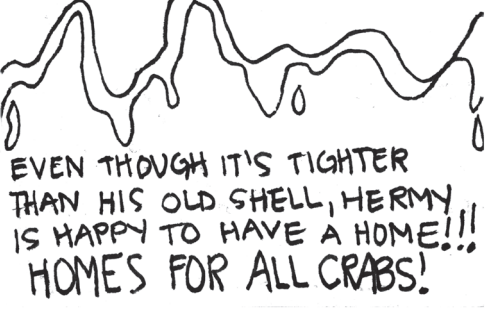 EVEN THOUGH IT'S TIGHTER
THAN HIS OLD SHELL, HERMY
IS HAPPY TO HAVE A HOME!!!
HOMES FOR ALL CRABS!